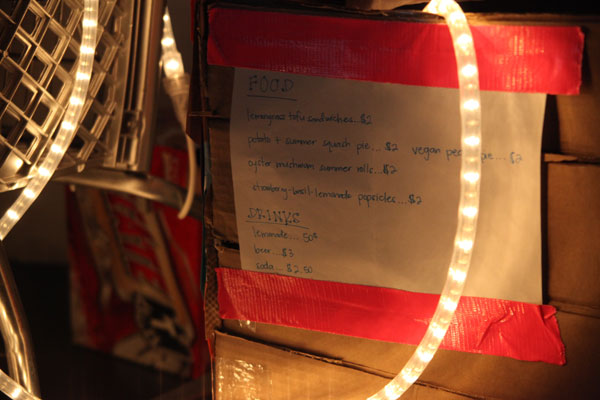 FOOD
lemongrass tofu sandwiches...$2
potato + summer squash pie...$2 vegan pie...$2
oyster mushroom summer rolls...$2
strawberry-basil-lemonade popsicles...$2
DRINKS
lemonade...50¢
beer...$3
soda...$2.50